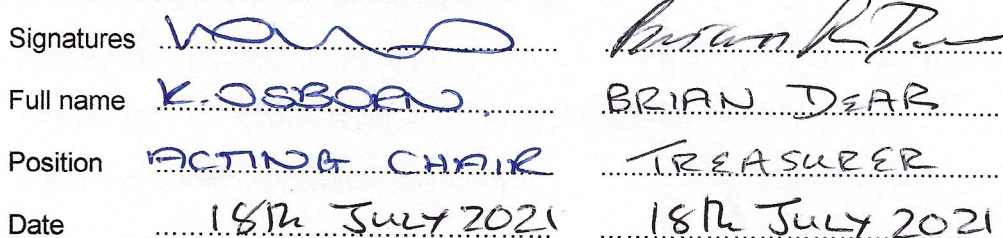 Signatures Brian
Full name K. OSBORN BRIAN DEAR
Position ACTING CHAIR TREASURER
Date 18th JULY 2021 18th JULY 2021